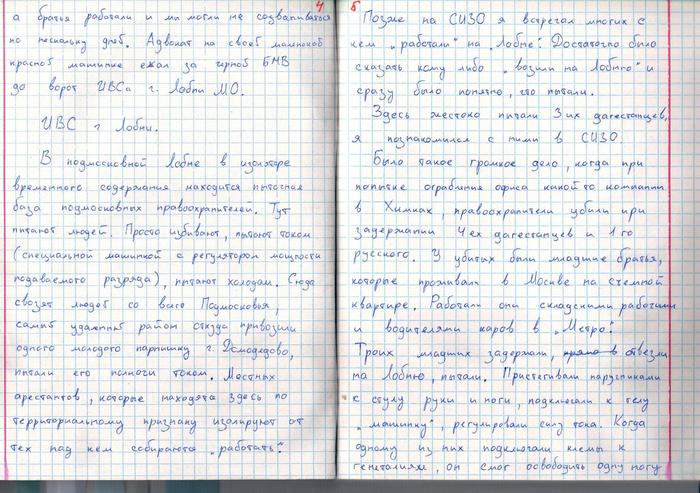 4
а братья работали и мы могли не созваниваться
по нескольку дней. Адвокат на своей маленькой
красной машинке ехал за черной БМВ
до ворот ИВСа г. Лобни МО.
ИВС г Лобни.
В подмосковной Лобне в изоляторе
временного содержания находится пыточная
база подмосковных правоохранителей. Тут
пытают людей. Просто избивают, пытают током
(специальной машинкой с регулятором мощности
подаваемого разряда), пытают холодом. Сюда
свозят людей со всего Подмосковья,
самый удаленный район откуда привозили
одного молодого парнишку г. Домодедово,
пытали его полночи током. Местных
арестантов, которые находятся здесь по
территориальному признаку изолируют от
тех над кем собираются „работать".
5
Позже на СИЗО я встречал многих с
кем „работали" на „Лобне". Достаточно было
сказать кому либо „возили на Лобню" и
сразу было понятно, что пытали.
Здесь жестоко пытали 3их дагестанцев,
я познакомился с ними в СИЗО.
Было такое громкое дело, когда при
попытке ограбления офиса какой то компании
в Химках, правоохранители убили при
задержании 4ех дагестанцев и 1го
русского. У убитых были младшие братья,
которые проживали в Москве на съемной
квартире. Работали они складскими рабочими
и водителями каров в „Метро".
Троих младших задержали, отвезли
на Лобню, пытали. Пристегивали наручниками
к стулу руки и ноги, подключали к телу
„машинку", регулировали силу тока. Когда
одному из них подключали клемы к
гениталиям, он смог освободить одну ногу